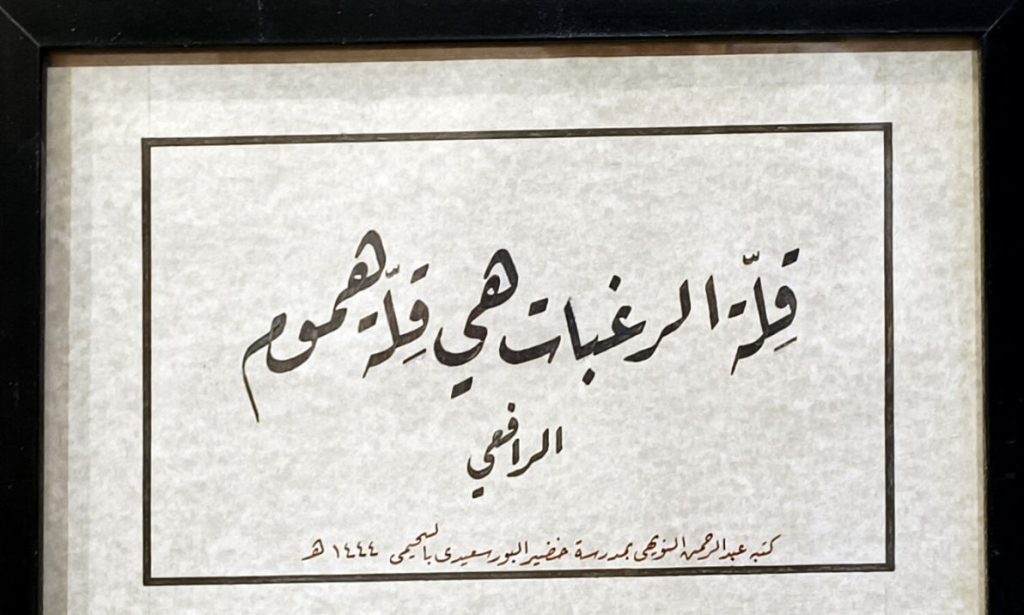 قِلّة الرغبات هي قِلّة هموم
الرافعي
كتبه عبدالرحمن بمدرسة خضير البورسعيدي ١٤٤٤ هـ